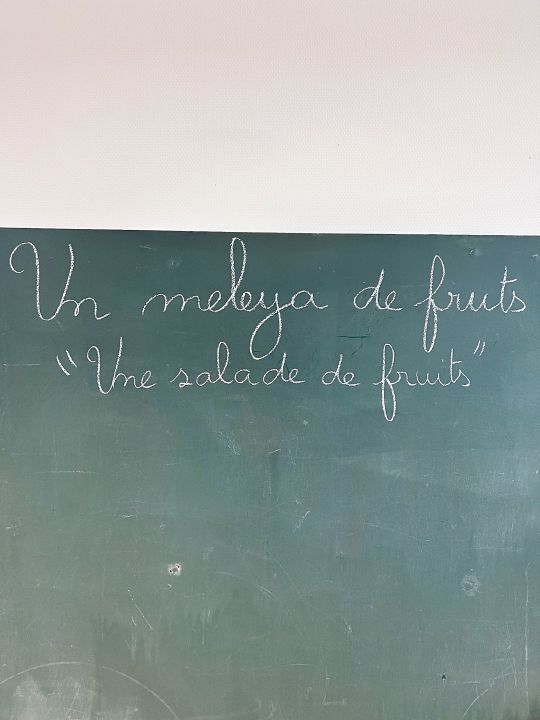 Un meleya de fruts
"Une salade de fruits"